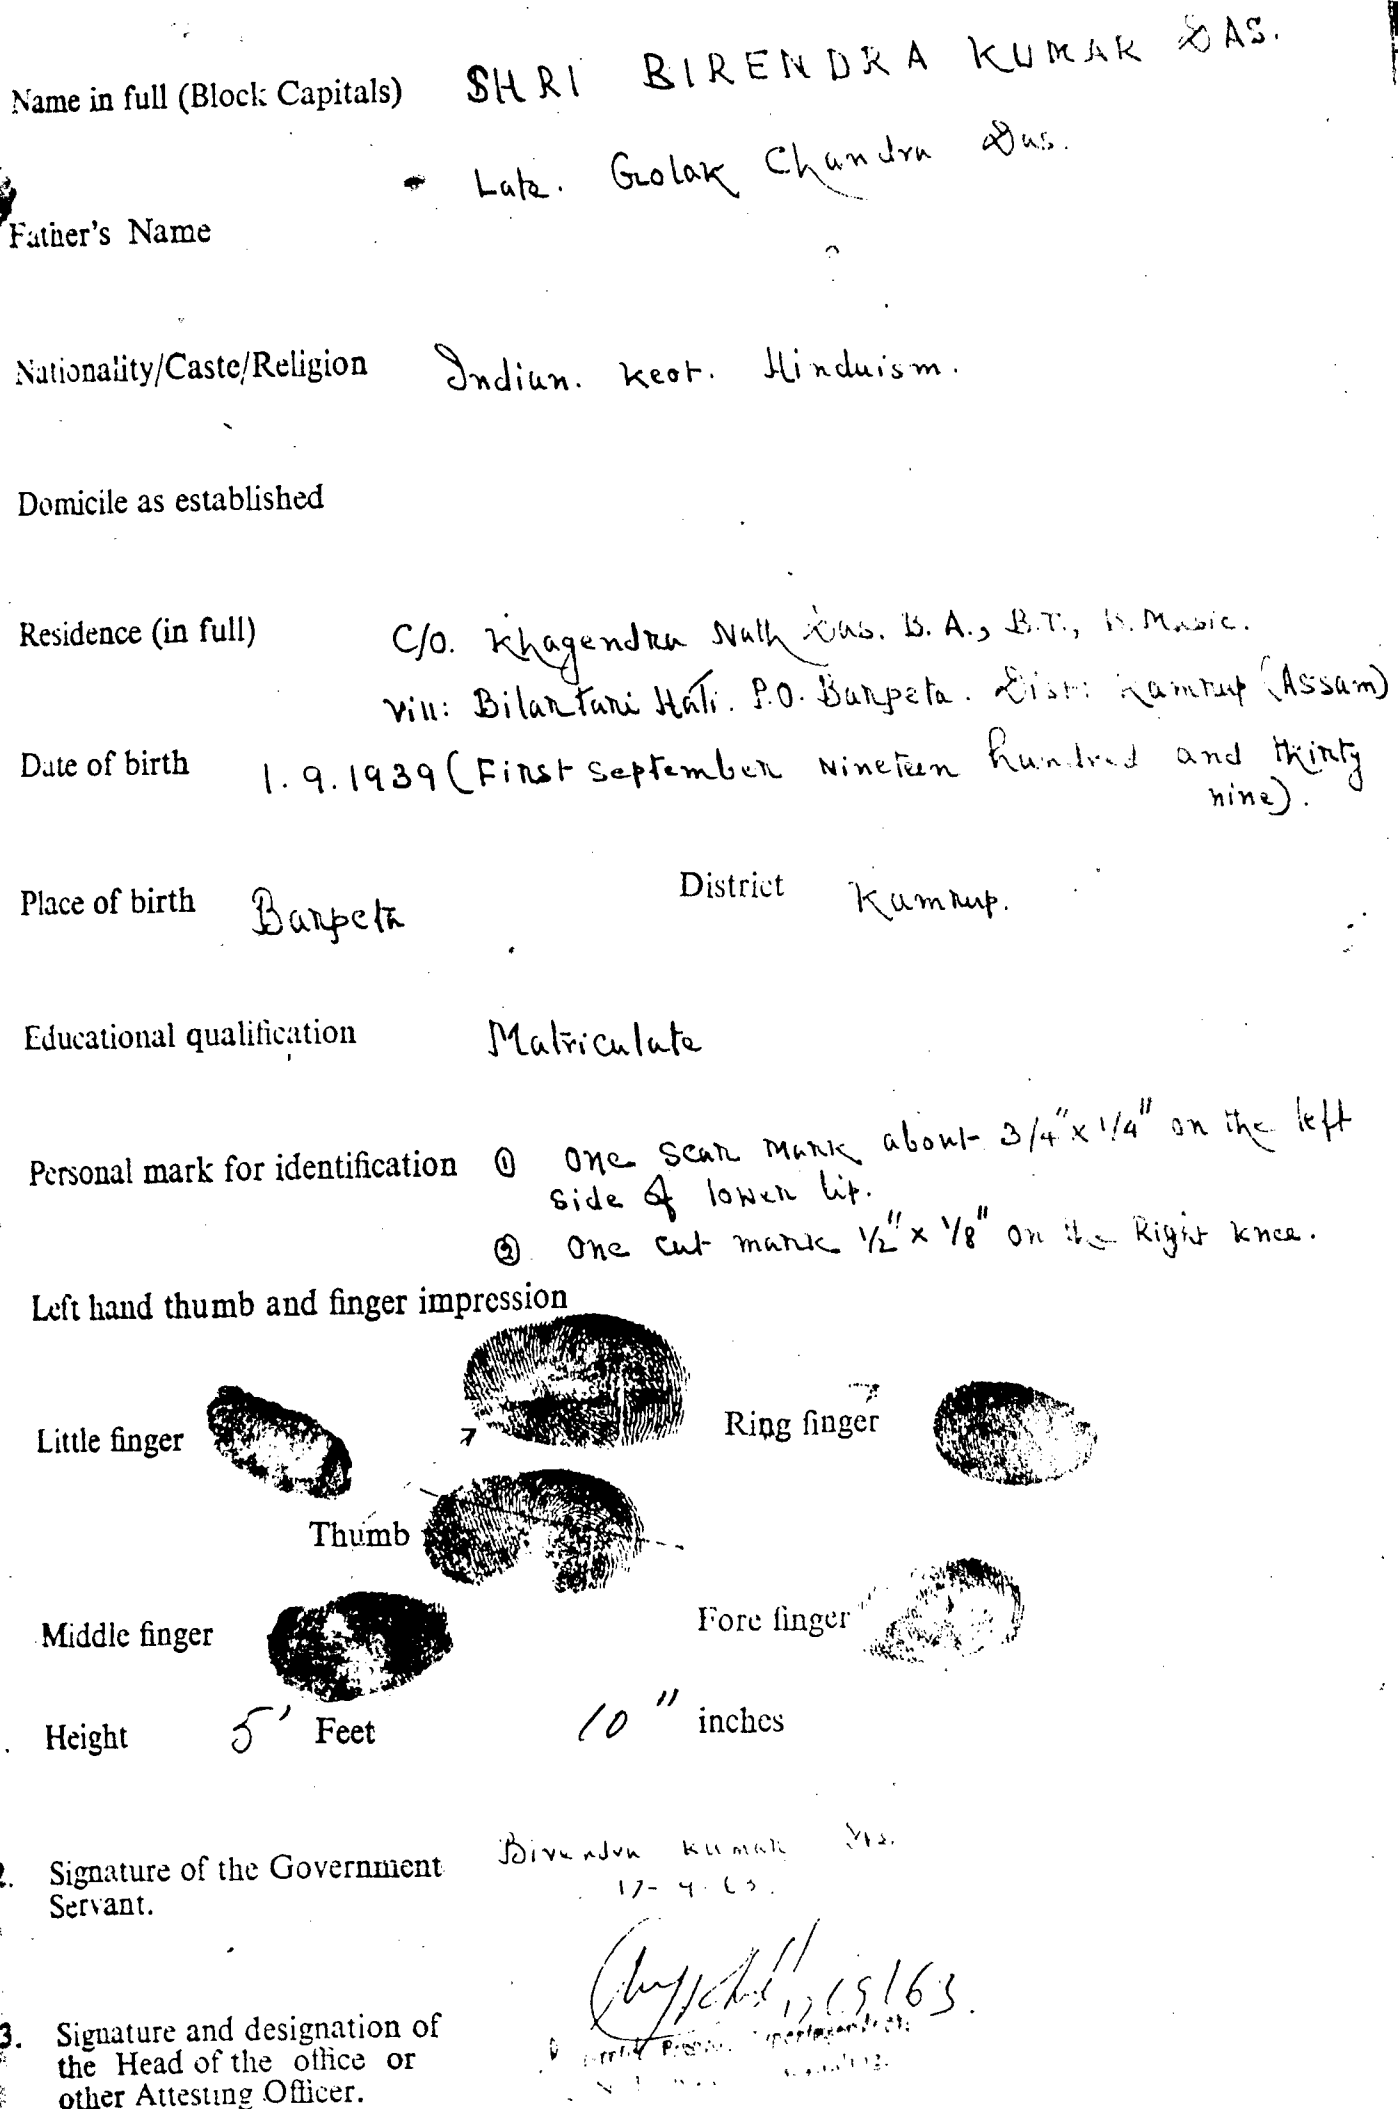 Name in full (Block Capitals) SHRI BIRENDRA KUMAR DAS.
Late. Golak Chandra Das.
Father's Name
Nationality/Caste/Religion Indian. Keot. Hinduism.
Domicile as established
Residence (in full) C/O. Khagendra Nath Das. B. A., B.T., B. Music.
Vill: Bilartari Hati. P.O. Barpeta. Dist: Kamrup (Assam)
Date of birth 1. 9. 1939 (First September Nineteen hundred and thirty
nine).
Place of birth Barpeta District Kamrup.
Educational qualification Matriculate
Personal mark for identification ① One scar mark about 3/4" x 1/4" on the left
side of lower lip.
② One cut mark 1/2" x 1/8" on the Right knee.
Left hand thumb and finger impression
Little finger Ring finger
Thumb
Middle finger Fore finger
Height 5' Feet 10" inches
2. Signature of the Government Birendra Kumar Das.
Servant.
3. Signature and designation of
the Head of the office or
other Attesting Officer.